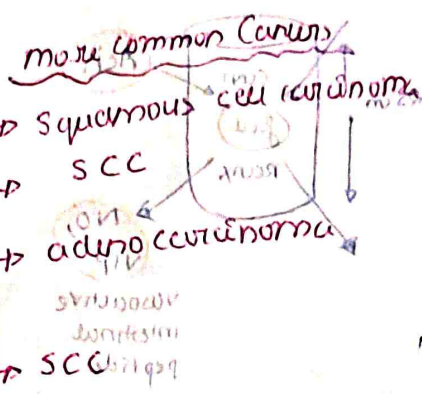 more common Cancers
→ Squamous cell carcinoma
→ SCC
→ adenocarcinoma
→ SCC